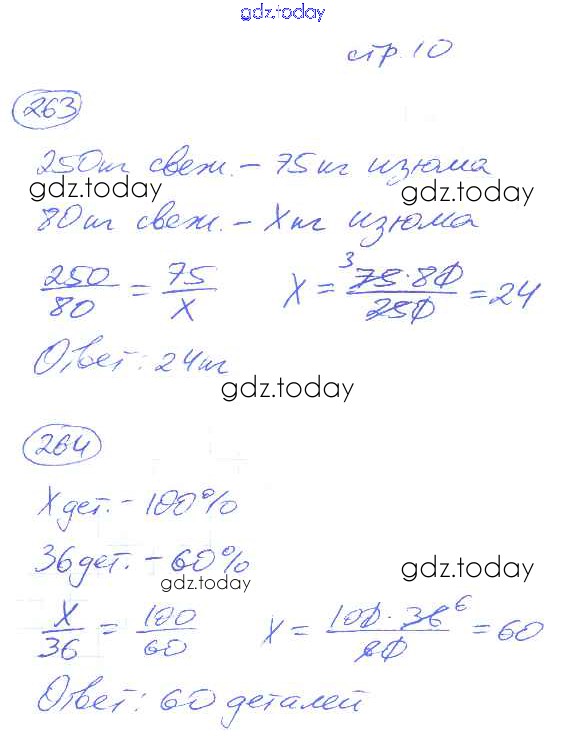 gdz.today
стр. 10
263
250кг свеж. – 75кг изюма
gdz.today gdz.today
80кг свеж. – Xкг изюма
250/80 = 75/X X = 75·80/250 = 24 3
Ответ: 24кг
gdz.today
264
X дет. – 100%
36дет. – 60%
gdz.today gdz.today
X/36 = 100/60 X = 100·36/60 = 60 6
Ответ: 60 деталей